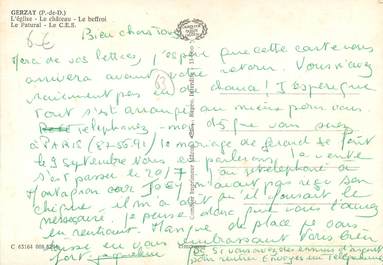 GERZAT (P.-de-D.)
L'église - Le château - Le beffroi
Le Patural - Le C.E.S.
6 €
Bien chers tous
Merci de vos lettres, j'espère que cette carte vous
arrivera avant votre retour. Vous n'avez
vraiment pas de chance! J'espère que
tout s'est arrangé au mieux pour vous.
Téléphonez-moi dès que vous serez
à PARIS (87.55.91) le mariage de Gérard se fait
le 9 septembre nous en parlerons, la vente
s'est passée le 20/7 j'ai téléphoné à
Montargon car JOSY n'avait pas reçu son
chèque il m'a dit qu'il faisait le
nécessaire. Je pense donc que vous l'aurez
en rentrant. Manque de place je vous
laisse en vous embrassant tous bien
fort Jacqueline
Si vous avez des ennuis d'argent
pour rentrer envoyez un télégramme
C 63164 008